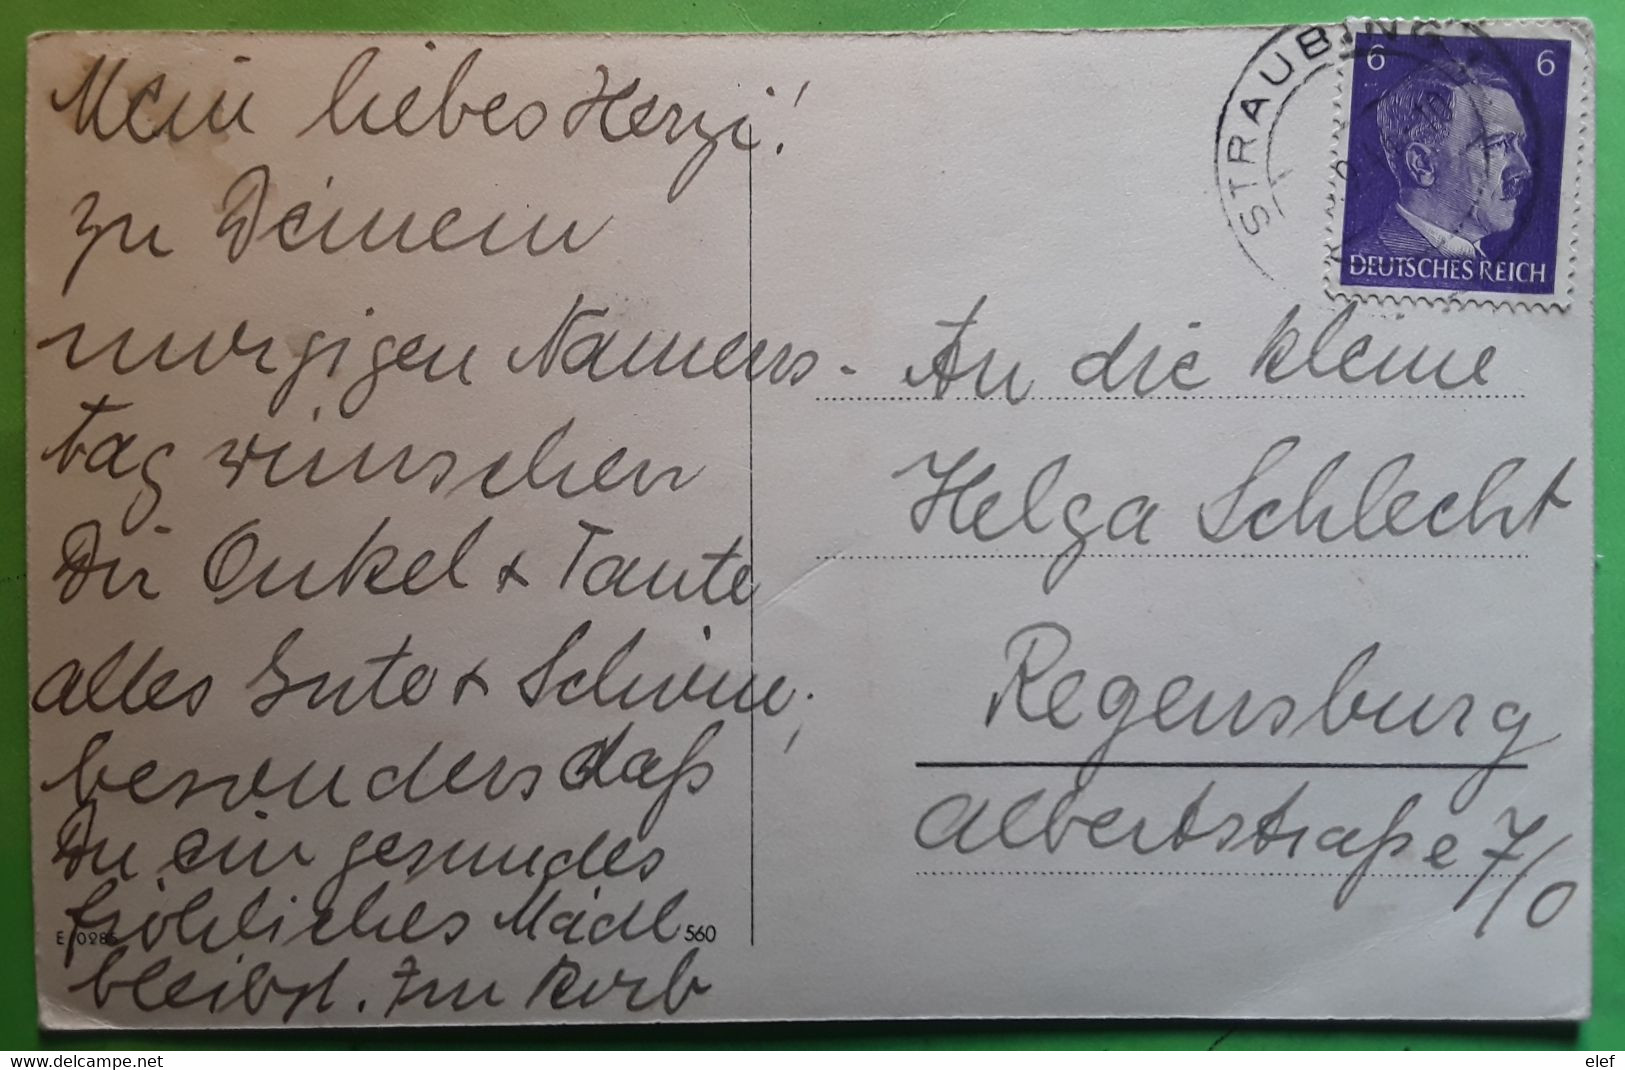 Mein liebes Herzi!
zu Deinem
morgigen Namens-
tag wünschen
Dir Onkel + Tante
alles Gute + Schöne,
besonders daß
Du ein gesundes
fröhliches Mädl
bleibst. Im Korb
E 0285
560
STRAUBING
6 6
DEUTSCHES REICH
An die kleine
Helga Schlecht
Regensburg
Albertstraße 7/0
www.delcampe.net
elef